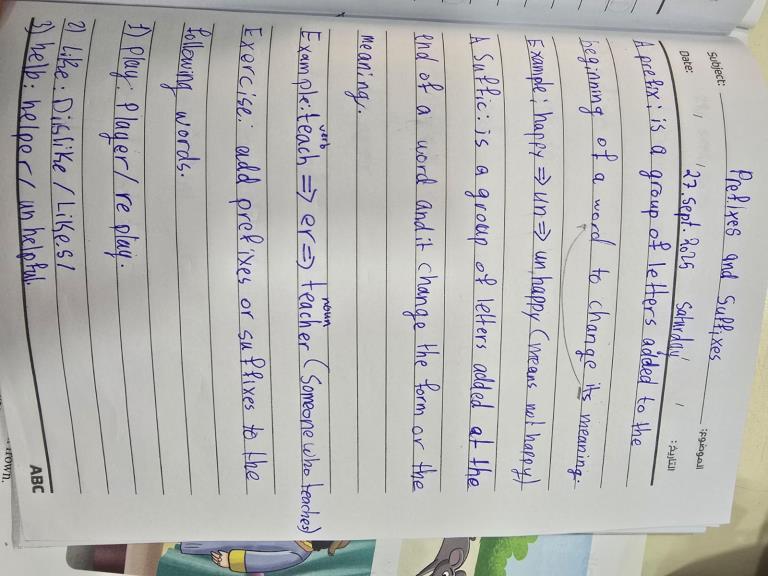 Prefixes and Suffixes
Subject: الموضوع:
Date: 27. Sept. 2025 Saturday التاريخ:
A prefix: is a group of letters added to the
beginning of a word to change its meaning.
Example: happy ⇒ un ⇒ unhappy (means not happy)
A Suffic: is a group of letters added at the
end of a word and it change the form or the
meaning.
verb noun
Example: teach ⇒ er ⇒ teacher (Someone who teaches)
Exercise: add prefixes or suffixes to the
following words.
1) play: Player / re play.
2) like: Dislike / Likes /
3) help: helper / un helpful
ABC
rown.